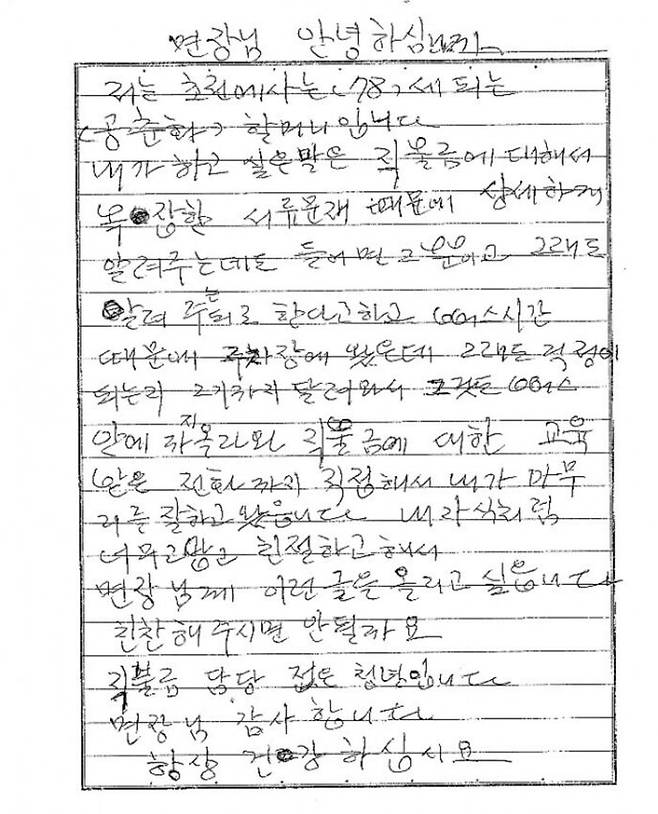 면장님 안녕하심니까
저는 초전에사는 (78) 세 되는
(공춘화) 할머니입니다
내가 하고 싶은말은 직불금에 대해서
복잡한 서류문재 때문에 상세하게
알려주는데도 들어면 그뿐이고 그래도
알려 주는되로 한다고하고 버스시간
때문에 주차장에 왔은데 그래도 걱정이
되는지 그기까지 달려와서 그것도 버스
안에 자지 올라와 직불금에 대한 교육
받은 전화까지 직접해서 내가 마무
리를 잘하고 왔읍니다 내 자식처럼
너무고맙고 친절하고해서
면장님께 이런 글은 올리고 싶읍니다
친찬해주시면 안될까요
직불금 담당 접은 청년입니다
면장님 감사 합니다
항상 건강 하십시요